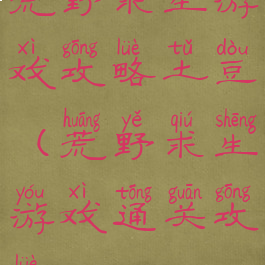 荒野求生游
xì gōng lüè tǔ dòu
戏攻略土豆
huāng yě qiú shēng
（荒野求生
yóu xì tōng guān gōng
游戏通关攻
lüè